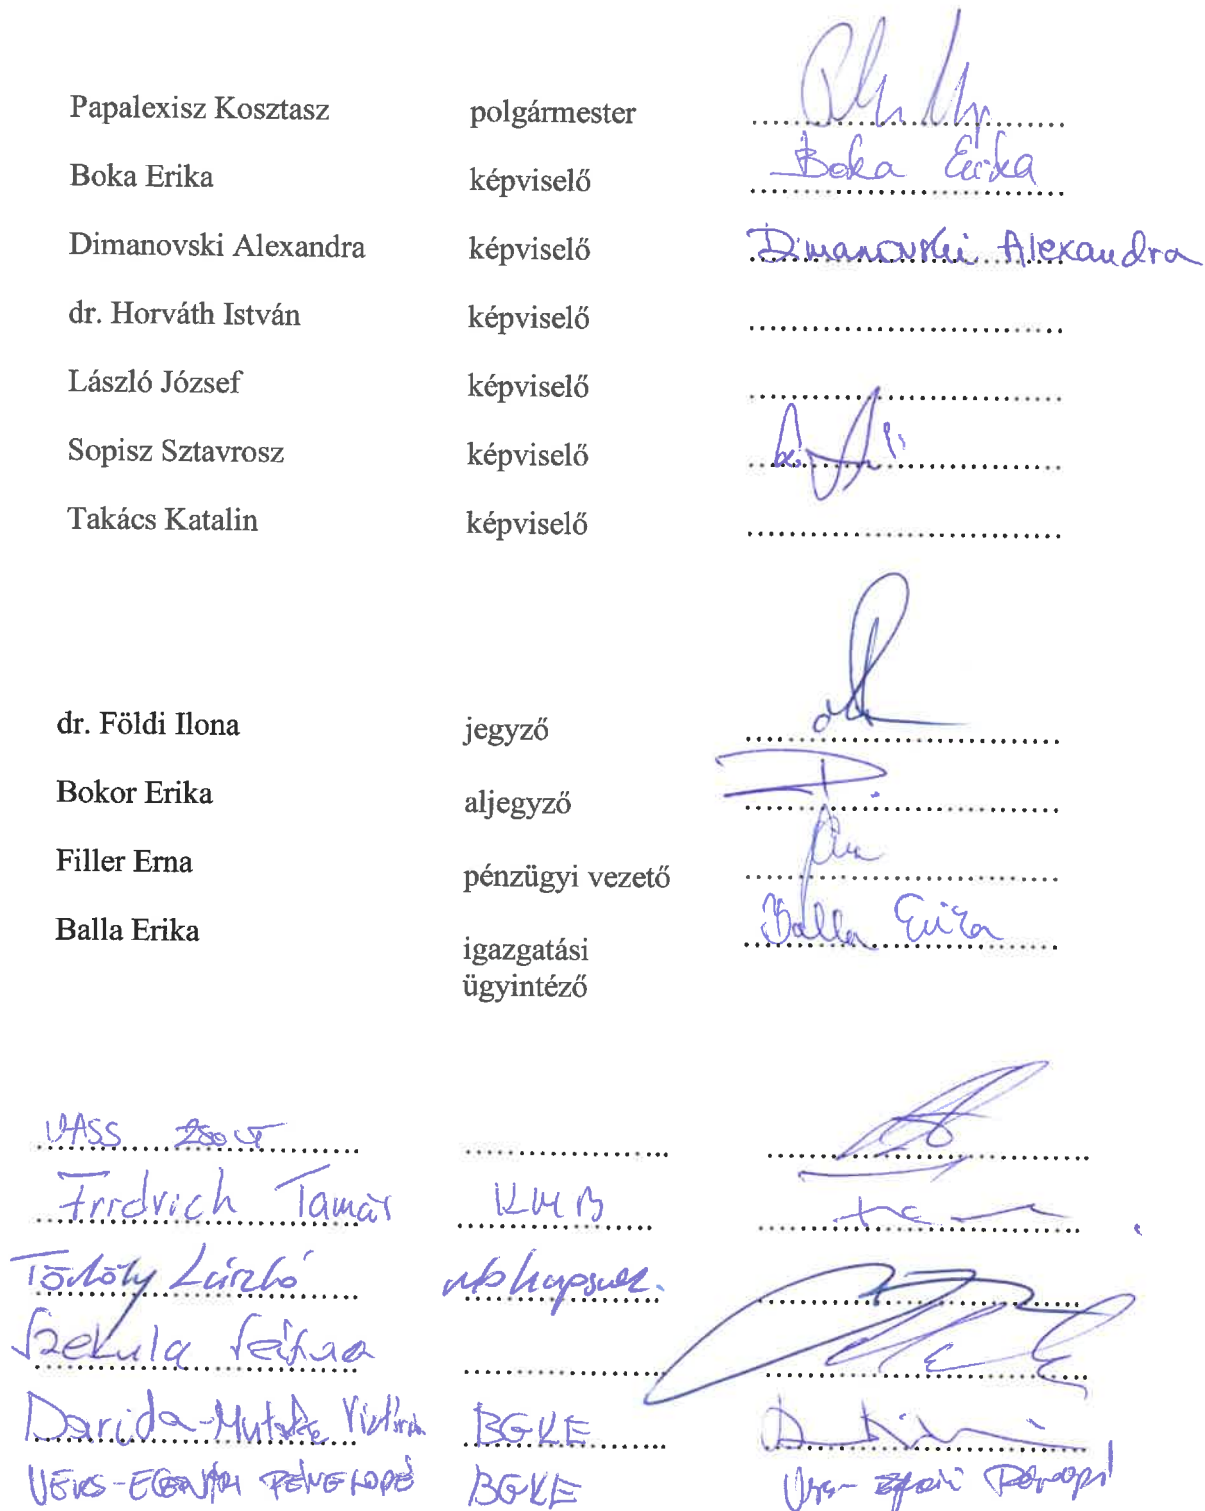 Papalexisz Kosztasz polgármester
Boka Erika képviselő Boka Erika
Dimanovski Alexandra képviselő Dimanovski Alexandra
dr. Horváth István képviselő
László József képviselő
Sopisz Sztavrosz képviselő
Takács Katalin képviselő
dr. Földi Ilona jegyző
Bokor Erika aljegyző
Filler Erna pénzügyi vezető
Balla Erika igazgatási Balla Erika
ügyintéző
VASS ZSOLT
Fridrich Tamás KMB
László
Szekula
Darida-Mutske Viktória BGKE
VERS- PÉNELOPÉ BGKE